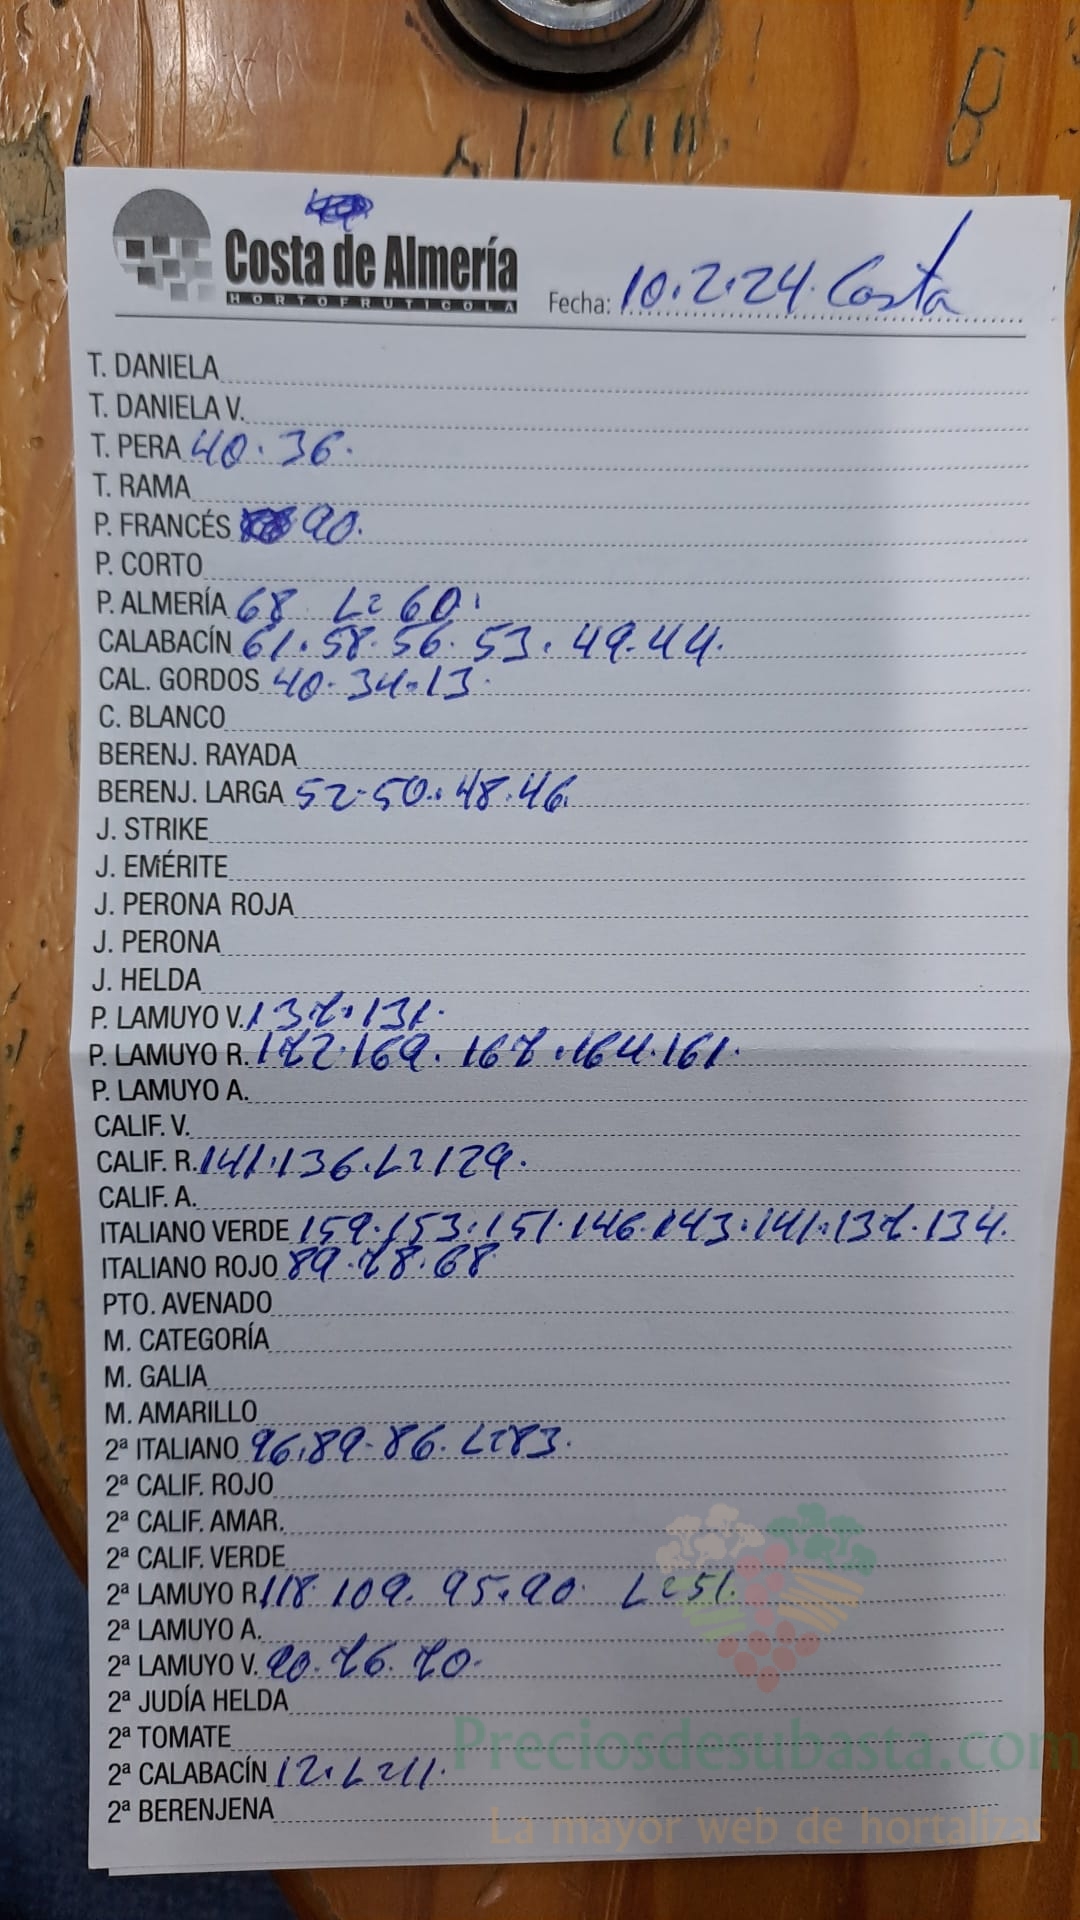 Costa de Almería
HORTOFRUTICOLA
Fecha: 10.2.24. Costa
T. DANIELA
T. DANIELA V.
T. PERA 40. 36.
T. RAMA
P. FRANCÉS 90.
P. CORTO
P. ALMERÍA 68 L= 60.
CALABACÍN 61. 58. 56. 53. 49. 44.
CAL. GORDOS 40. 34. 13.
C. BLANCO
BERENJ. RAYADA
BERENJ. LARGA 52. 50. 48. 46.
J. STRIKE
J. EMÉRITE
J. PERONA ROJA
J. PERONA
J. HELDA
P. LAMUYO V. 137. 131.
P. LAMUYO R. 172. 169. 167. 164. 161.
P. LAMUYO A.
CALIF. V.
CALIF. R. 141. 136. L= 129.
CALIF. A.
ITALIANO VERDE 159. 153. 151. 146. 143. 141. 137. 134.
ITALIANO ROJO 89. 78. 68
PTO. AVENADO
M. CATEGORÍA
M. GALIA
M. AMARILLO
2ª ITALIANO 96. 89. 86. L= 83.
2ª CALIF. ROJO
2ª CALIF. AMAR.
2ª CALIF. VERDE
2ª LAMUYO R. 118. 109. 95. 90. L= 51.
2ª LAMUYO A.
2ª LAMUYO V. 90. 76. 70.
2ª JUDÍA HELDA
2ª TOMATE
2ª CALABACÍN 12. L= 11.
2ª BERENJENA
Preciosdesubasta.com
La mayor web de hortalizas